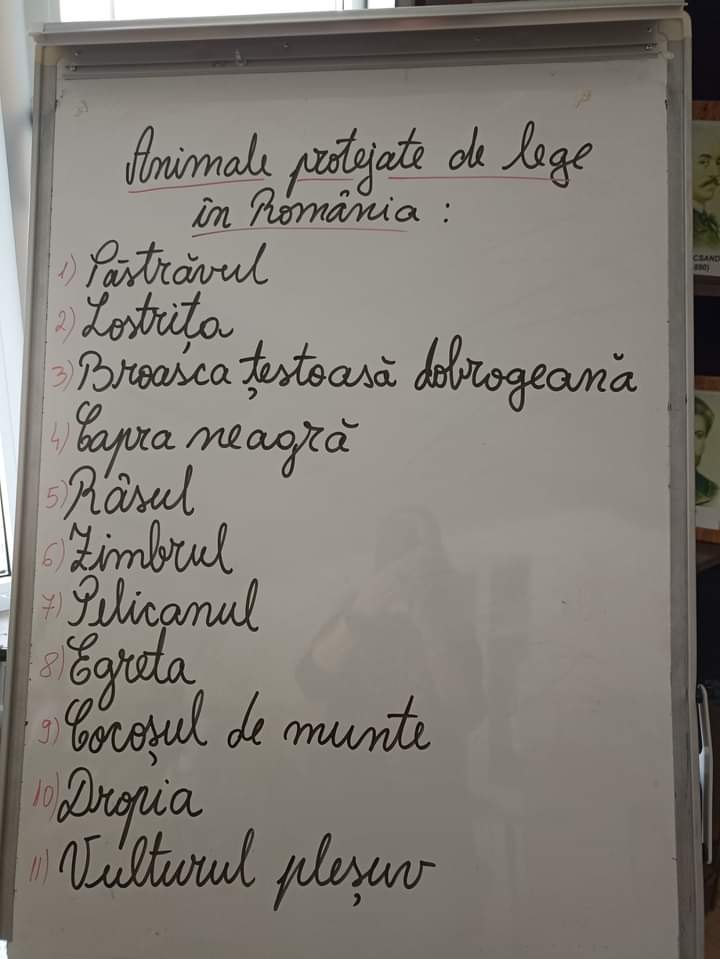 Animale protejate de lege
în România :
1) Păstrăvul
2) Lostrița
3) Broasca țestoasă dobrogeană
4) Capra neagră
5) Râsul
6) Zimbrul
7) Pelicanul
8) Egreta
9) Cocoșul de munte
10) Dropia
11) Vulturul pleșuv